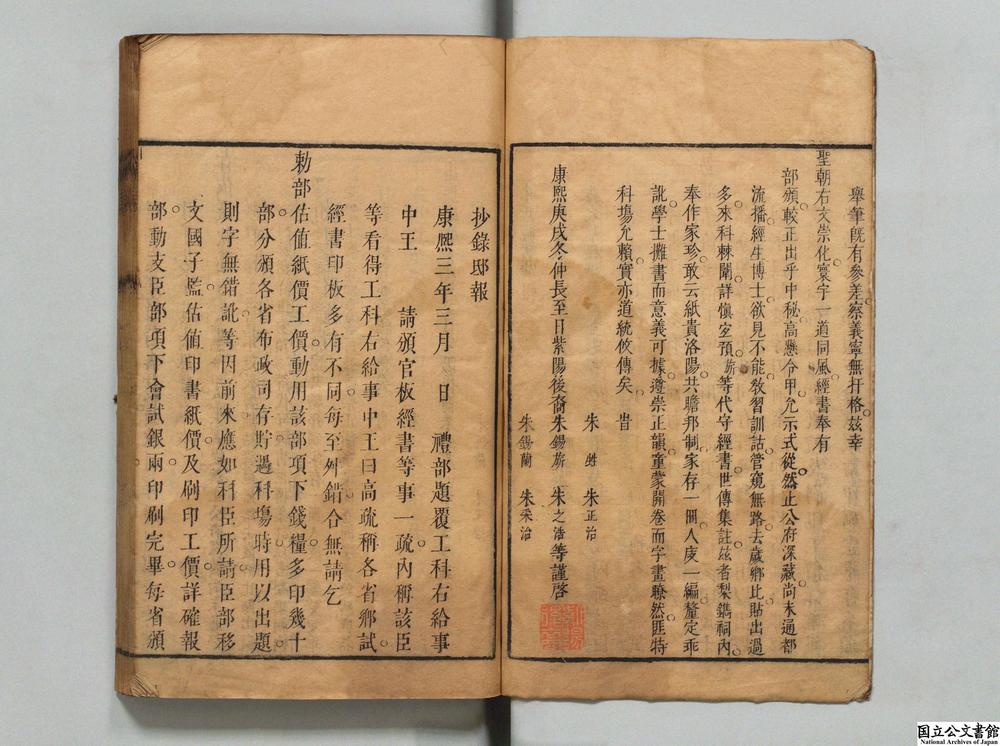 舉筆旣有參差察義寧無扞格茲幸
聖朝右文崇化寰宇一道同風經書奉有
部頒較正出乎中秘高懸令甲允示式從然止公府深藏尚未通都
流播經生博士欲見不能敎習訓詁管窺無路去歲鄉比貼出過
多來科棘闈詳愼室預蔪等代守經書世傳集註玆者梨鐫祠內
奉作家珍敢云紙貴洛陽共瞻邦制家存一冊人庋一編釐定乖
訛學士攤書而意義可據遵崇正韻童蒙開卷而字畫瞭然匪特
科塲允賴實亦道統攸傳矣 旹
康熙庚戌冬仲長至日紫陽後裔朱錫蔪 朱之潘等謹啓
朱 朱正治
朱錫蘭 朱采治
抄錄邸報
康熙三年三月 日 禮部題覆工科右給事
中王 請頒官板經書等事一疏內稱該臣
等看得工科右給事中王曰高疏稱各省鄉試
經書印板多有不同每至舛錯合無請乞
勅部估値紙價工價動用該部項下錢糧多印幾十
部分頒各省布政司存貯遇科塲時用以出題
則字無錯訛等因前來應如科臣所請臣部移
文國子監估値印書紙價及刷印工價詳確報
部動支臣部項下會試銀兩印刷完畢每省頒
国立公文書館
National Archives of Japan